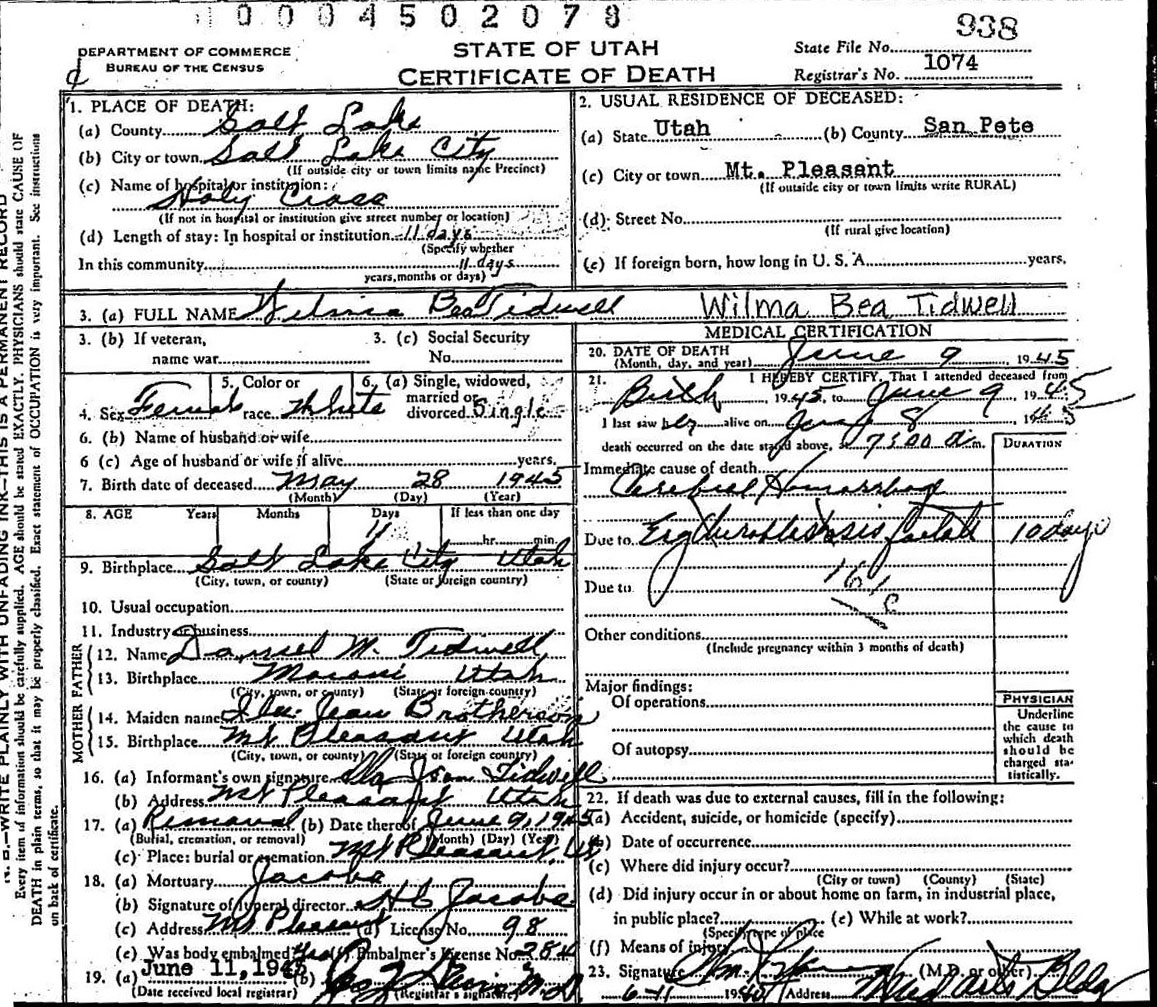 0 0 0 4 5 0 2 0 7 8
938
DEPARTMENT OF COMMERCE
BUREAU OF THE CENSUS
STATE OF UTAH
CERTIFICATE OF DEATH
State File No.
Registrar's No. 1074
1. PLACE OF DEATH:
(a) County Salt Lake
(b) City or town Salt Lake City
(If outside city or town limits name Precinct)
(c) Name of hospital or institution:
Holy Cross
(If not in hospital or institution give street number or location)
(d) Length of stay: In hospital or institution 11 days
(Specify whether
In this community 11 days
years, months or days)
2. USUAL RESIDENCE OF DECEASED:
(a) State Utah (b) County San Pete
(c) City or town Mt. Pleasant
(If outside city or town limits write RURAL)
(d) Street No.
(If rural give location)
(e) If foreign born, how long in U. S. A. years.
3. (a) FULL NAME Wilma Bea Tidwell Wilma Bea Tidwell
3. (b) If veteran,
name war
3. (c) Social Security
No.
4. Sex Female
5. Color or
race White
6. (a) Single, widowed,
married or
divorced Single
6. (b) Name of husband or wife
6 (c) Age of husband or wife if alive years.
7. Birth date of deceased May 28 1945
(Month) (Day) (Year)
8. AGE Years Months Days If less than one day
11 hr. min.
9. Birthplace Salt Lake City Utah
(City, town, or county) (State or foreign country)
10. Usual occupation
11. Industry or business
FATHER
12. Name Daniel M. Tidwell
13. Birthplace Moroni Utah
(City, town, or county) (State or foreign country)
MOTHER
14. Maiden name Ila Jean Brotherson
15. Birthplace Mt Pleasant Utah
(City, town, or county) (State or foreign country)
16. (a) Informant's own signature Ila Jean Tidwell
(b) Address Mt Pleasant Utah
17. (a) Removal (b) Date thereof June 9, 1945
(Burial, cremation, or removal) (Month) (Day) (Year)
(c) Place: burial or cremation Mt Pleasant, Ut
18. (a) Mortuary Jacobs
(b) Signature of funeral director
Jacobs
(c) Address Mt Pleasant (d) License No. 98
(e) Was body embalmed Yes (f) Embalmer's License No. 284
19. (a) June 11, 1945 (b)
M.D.
(Date received local registrar) (Registrar's signature)
MEDICAL CERTIFICATION
20. DATE OF DEATH
(Month, day, and year) June 9, 1945
21. I HEREBY CERTIFY, That I attended deceased from
Birth, 1945, to June 9, 1945
I last saw her alive on June 8, 1945
death occurred on the date stated above, at 7:00 a.m.
DURATION
Immediate cause of death
Cerebral Hemorrhage
Due to Erythroblastosis foetalis 10 days
Due to 161
c
Other conditions
(Include pregnancy within 3 months of death)
Major findings:
Of operations
Of autopsy
PHYSICIAN
Underline
the cause to
which death
should be
charged sta-
tistically.
22. If death was due to external causes, fill in the following:
(a) Accident, suicide, or homicide (specify)
(b) Date of occurrence
(c) Where did injury occur?
(City or town) (County) (State)
(d) Did injury occur in or about home on farm, in industrial place,
in public place? (e) While at work?
(Specify type of place
(f) Means of injury
23. Signature (M.D. or other)
6-11 1945 Address Med Arts Bldg
N. B.—WRITE PLAINLY WITH UNFADING INK—THIS IS A PERMANENT RECORD
Every item of information should be carefully supplied. AGE should be stated EXACTLY. PHYSICIANS should state CAUSE OF
DEATH in plain terms, so that it may be properly classified. Exact statement of OCCUPATION is very important. See instructions
on back of certificate.